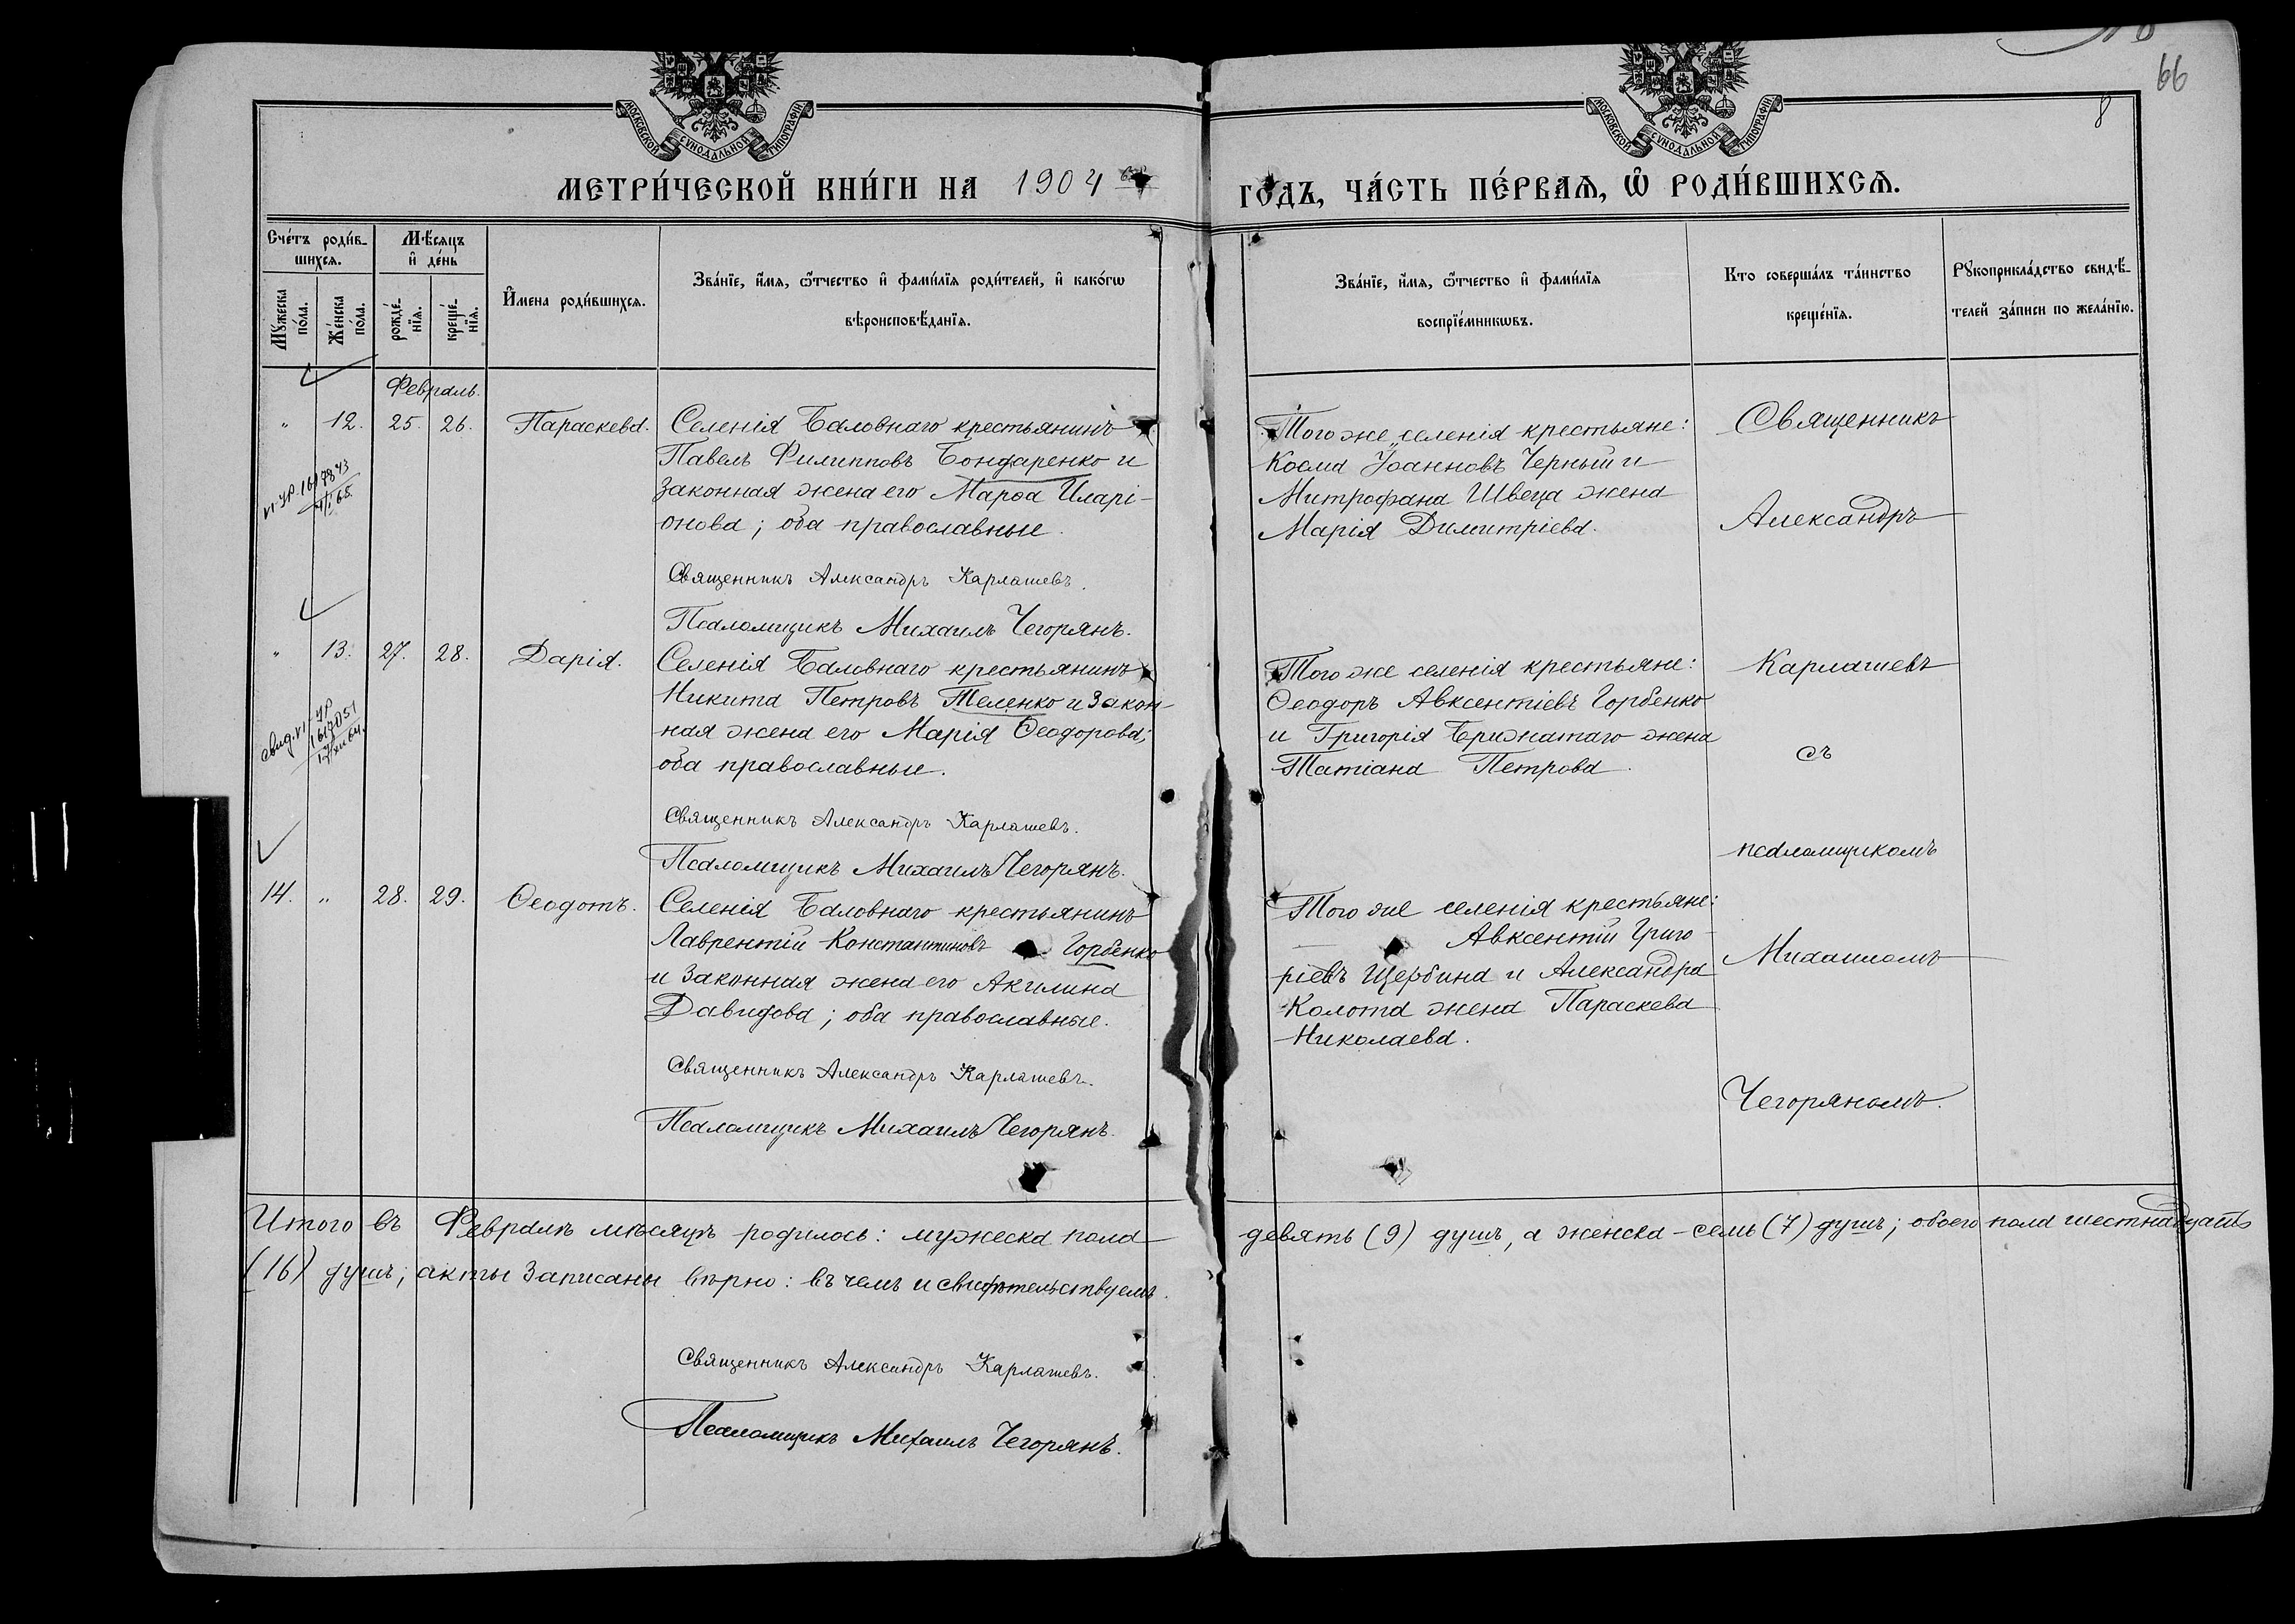 66
8
МОСКОВСКОЙ СУНОДАЛЬНОЙ ТИПОГРАФІИ
МОСКОВСКОЙ СУНОДАЛЬНОЙ ТИПОГРАФІИ
МЕТРИ́ЧЕСКОЙ КНИ́ГИ НА 1904 ГОДЪ, ЧА́СТЬ ПЕ́РВАѦ, Ѿ РОДИ́ВШИХСѦ.
Сче́тъ роди́в-
шихсѧ.
Мꙋжеска по́ла.
Же́нска по́ла.
Мѣ́сѧцъ
и҆ де́нь
рожде́-
нїѧ.
креще́-
нїѧ.
И҆мена роди́вшихсѧ.
Зва́нїе, и҆́мѧ, ѻ҆́тчество и҆ фами́лїѧ роди́телей, и҆ како́гѡ
вѣроисповѣ́данїѧ.
Зва́нїе, и҆́мѧ, ѻ҆́тчество и҆ фами́лїѧ
воспрїе́мникѡвъ.
Кто соверша́лъ та́инство
креще́нїѧ.
Рꙋкоприкла́дство свидѣ́-
телей за́писи по жела́нїю.
Февраль.
„ 12. 25. 26. Параскева.
Селенія Баловнаго крестьянинъ
Павелъ Филипповъ Бондаренко и
законная жена его Марѳа Иларі-
онова; оба православные.
Священникъ Александръ Карлашевъ.
Псаломщикъ Михаилъ Чегорянъ.
Того же селенія крестьяне:
Косма Іоанновъ Черный и
Митрофана Швеца жена
Марія Димитріева.
Священникъ
Александръ
„ 13. 27. 28. Дарія.
Селенія Баловнаго крестьянинъ
Никита Петровъ Теленко и закон-
ная жена его Марія Ѳеодорова;
оба православные.
Священникъ Александръ Карлашевъ.
Псаломщикъ Михаилъ Чегорянъ.
Того же селенія крестьяне:
Ѳеодоръ Авксентіевъ Горбенко
и Григорія Брижатаго жена
Татіана Петрова.
Карлашевъ
съ
псаломщикомъ
14. „ 28. 29. Ѳеодотъ.
Селенія Баловнаго крестьянинъ
Лаврентій Константиновъ Горбенко
и законная жена его Акилина
Давидова; оба православные.
Священникъ Александръ Карлашевъ.
Псаломщикъ Михаилъ Чегорянъ.
Того же селенія крестьяне:
Авксентій Григо-
ріевъ Щербина и Александра
Колота жена Параскева
Николаева.
Михаиломъ
Чегоряномъ.
Итого въ Февралѣ мѣсяцѣ родилось: мужеска пола девять (9) душъ, а женска – семь (7) душъ; обоего пола шестнадцать
(16) душъ; акты записаны вѣрно: въ чемъ и свидѣтельствуемъ.
Священникъ Александръ Карлашевъ.
Псаломщикъ Михаилъ Чегорянъ.